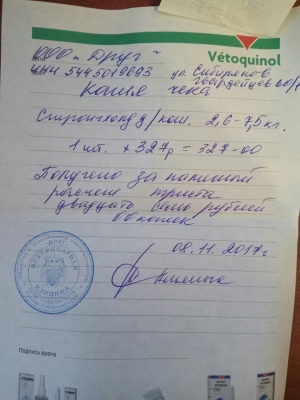 Vétoquinol
ООО "Друг"
ИНН 5445019693 ул. Сибиряков
Гвардейцев
Копия чека
Стронгхолд д/кош. 2,6-7,5кг.
1 шт. x 327р = 327-00
Получено за наличный
расчет триста
двадцать семь рублей
00 копеек
08.11.2017г.
ДРУГ
ВЕТЕРИНАРНАЯ
КЛИНИКА
Подпись врача